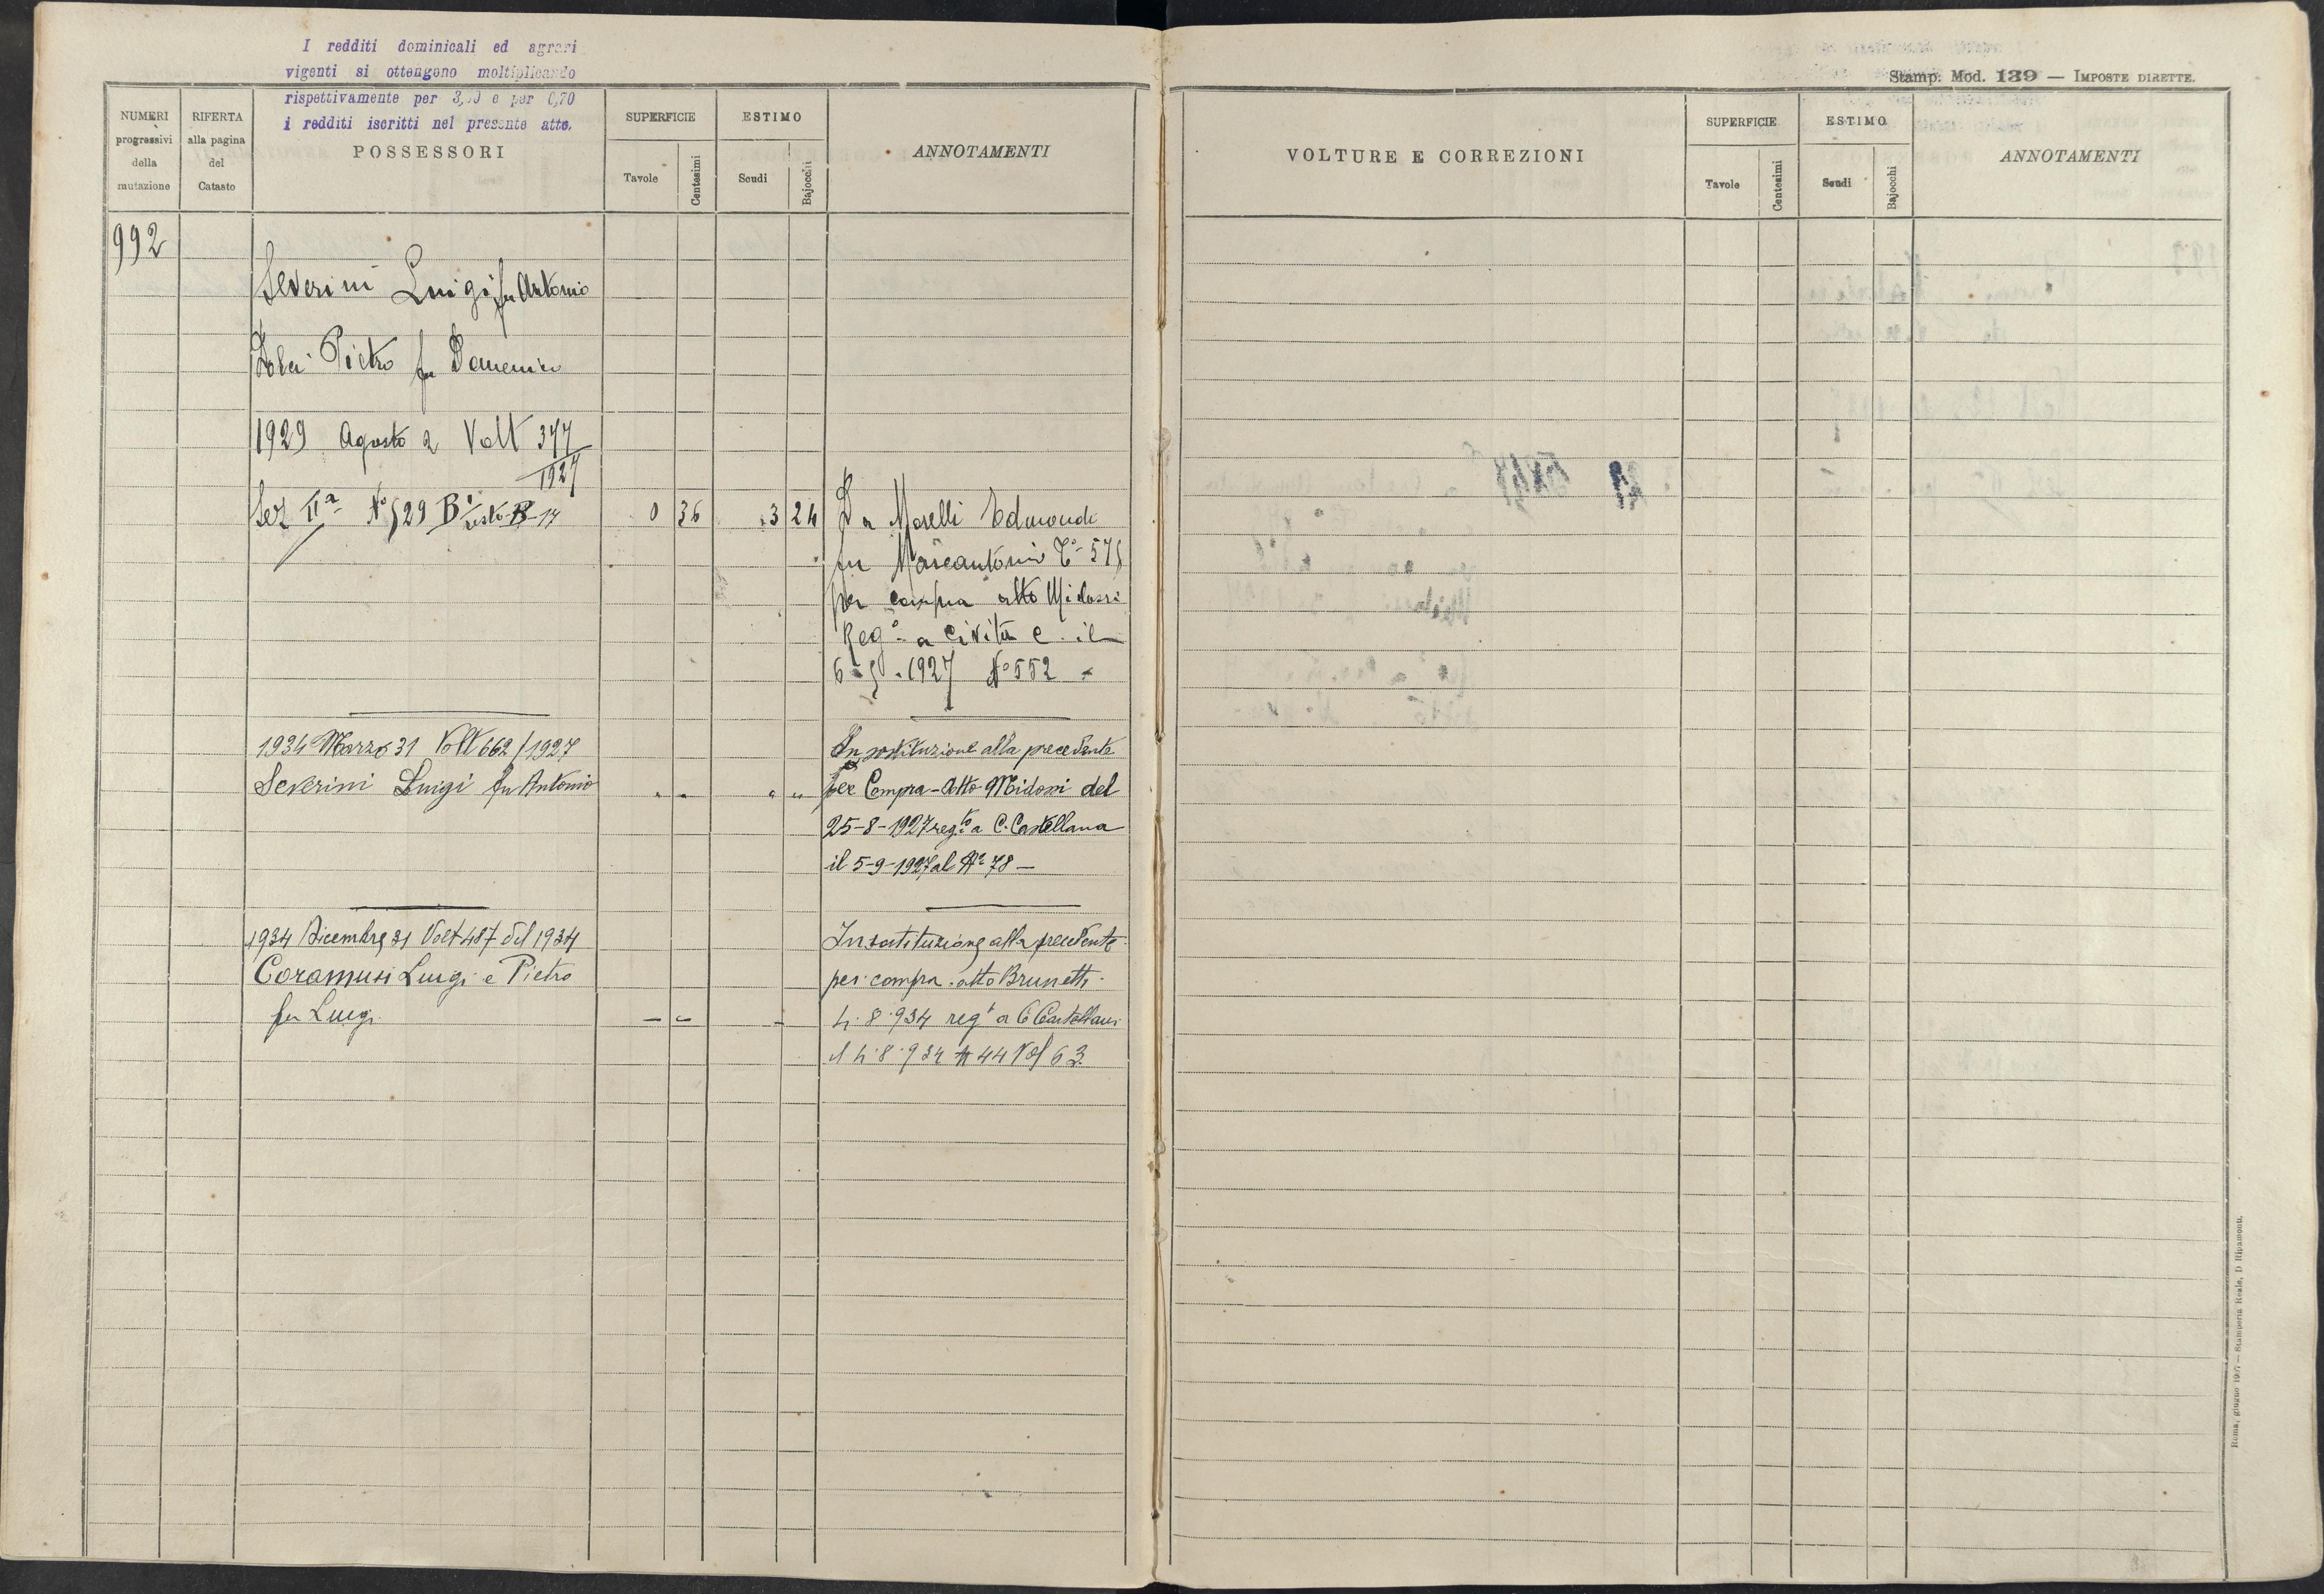 I redditi dominicali ed agrari
vigenti si ottengono moltiplicando
rispettivamente per e per 0,70
i redditi iscritti nel presente atto.
NUMERI
progressivi
della
mutazione
RIFERTA
alla pagina
del
Catasto
POSSESSORI
SUPERFICIE
Tavole
Centesimi
ESTIMO
Scudi
Bajocchi
ANNOTAMENTI
992
Severini Luigi fu Antonio
Pietro fu Domenico
1929 Agosto 2 Volt 377
1927
Sez IIa No 529 resto B 17
0 36 3 24
Da Morelli Edmondo
fu Marcantonio
per compra atto Midossi
Rego a Civita C. il
1927 No 552
1934 Marzo 31 Volt 662/1927
Severini Luigi fu Antonio
In sostituzione alla precedente
per Compra - Atto Midossi del
25-8-1927 reg.to a C. Castellana
il 5-9-1927 al No 78 —
1934 Dicembre 31 Volt 487 del 1934
Coramusi Luigi e Pietro
fu Luigi
In sostituzione alla precedente
per compra atto Brunetti
4.8.934 regto a C Castellana
il 4.8.934 N 44 Vol 63
Stamp. Mod. 139 — IMPOSTE DIRETTE.
VOLTURE E CORREZIONI
SUPERFICIE
Tavole
Centesimi
ESTIMO
Scudi
Bajocchi
ANNOTAMENTI
Roma, giugno — Stamperia Reale, D. Ripamonti.